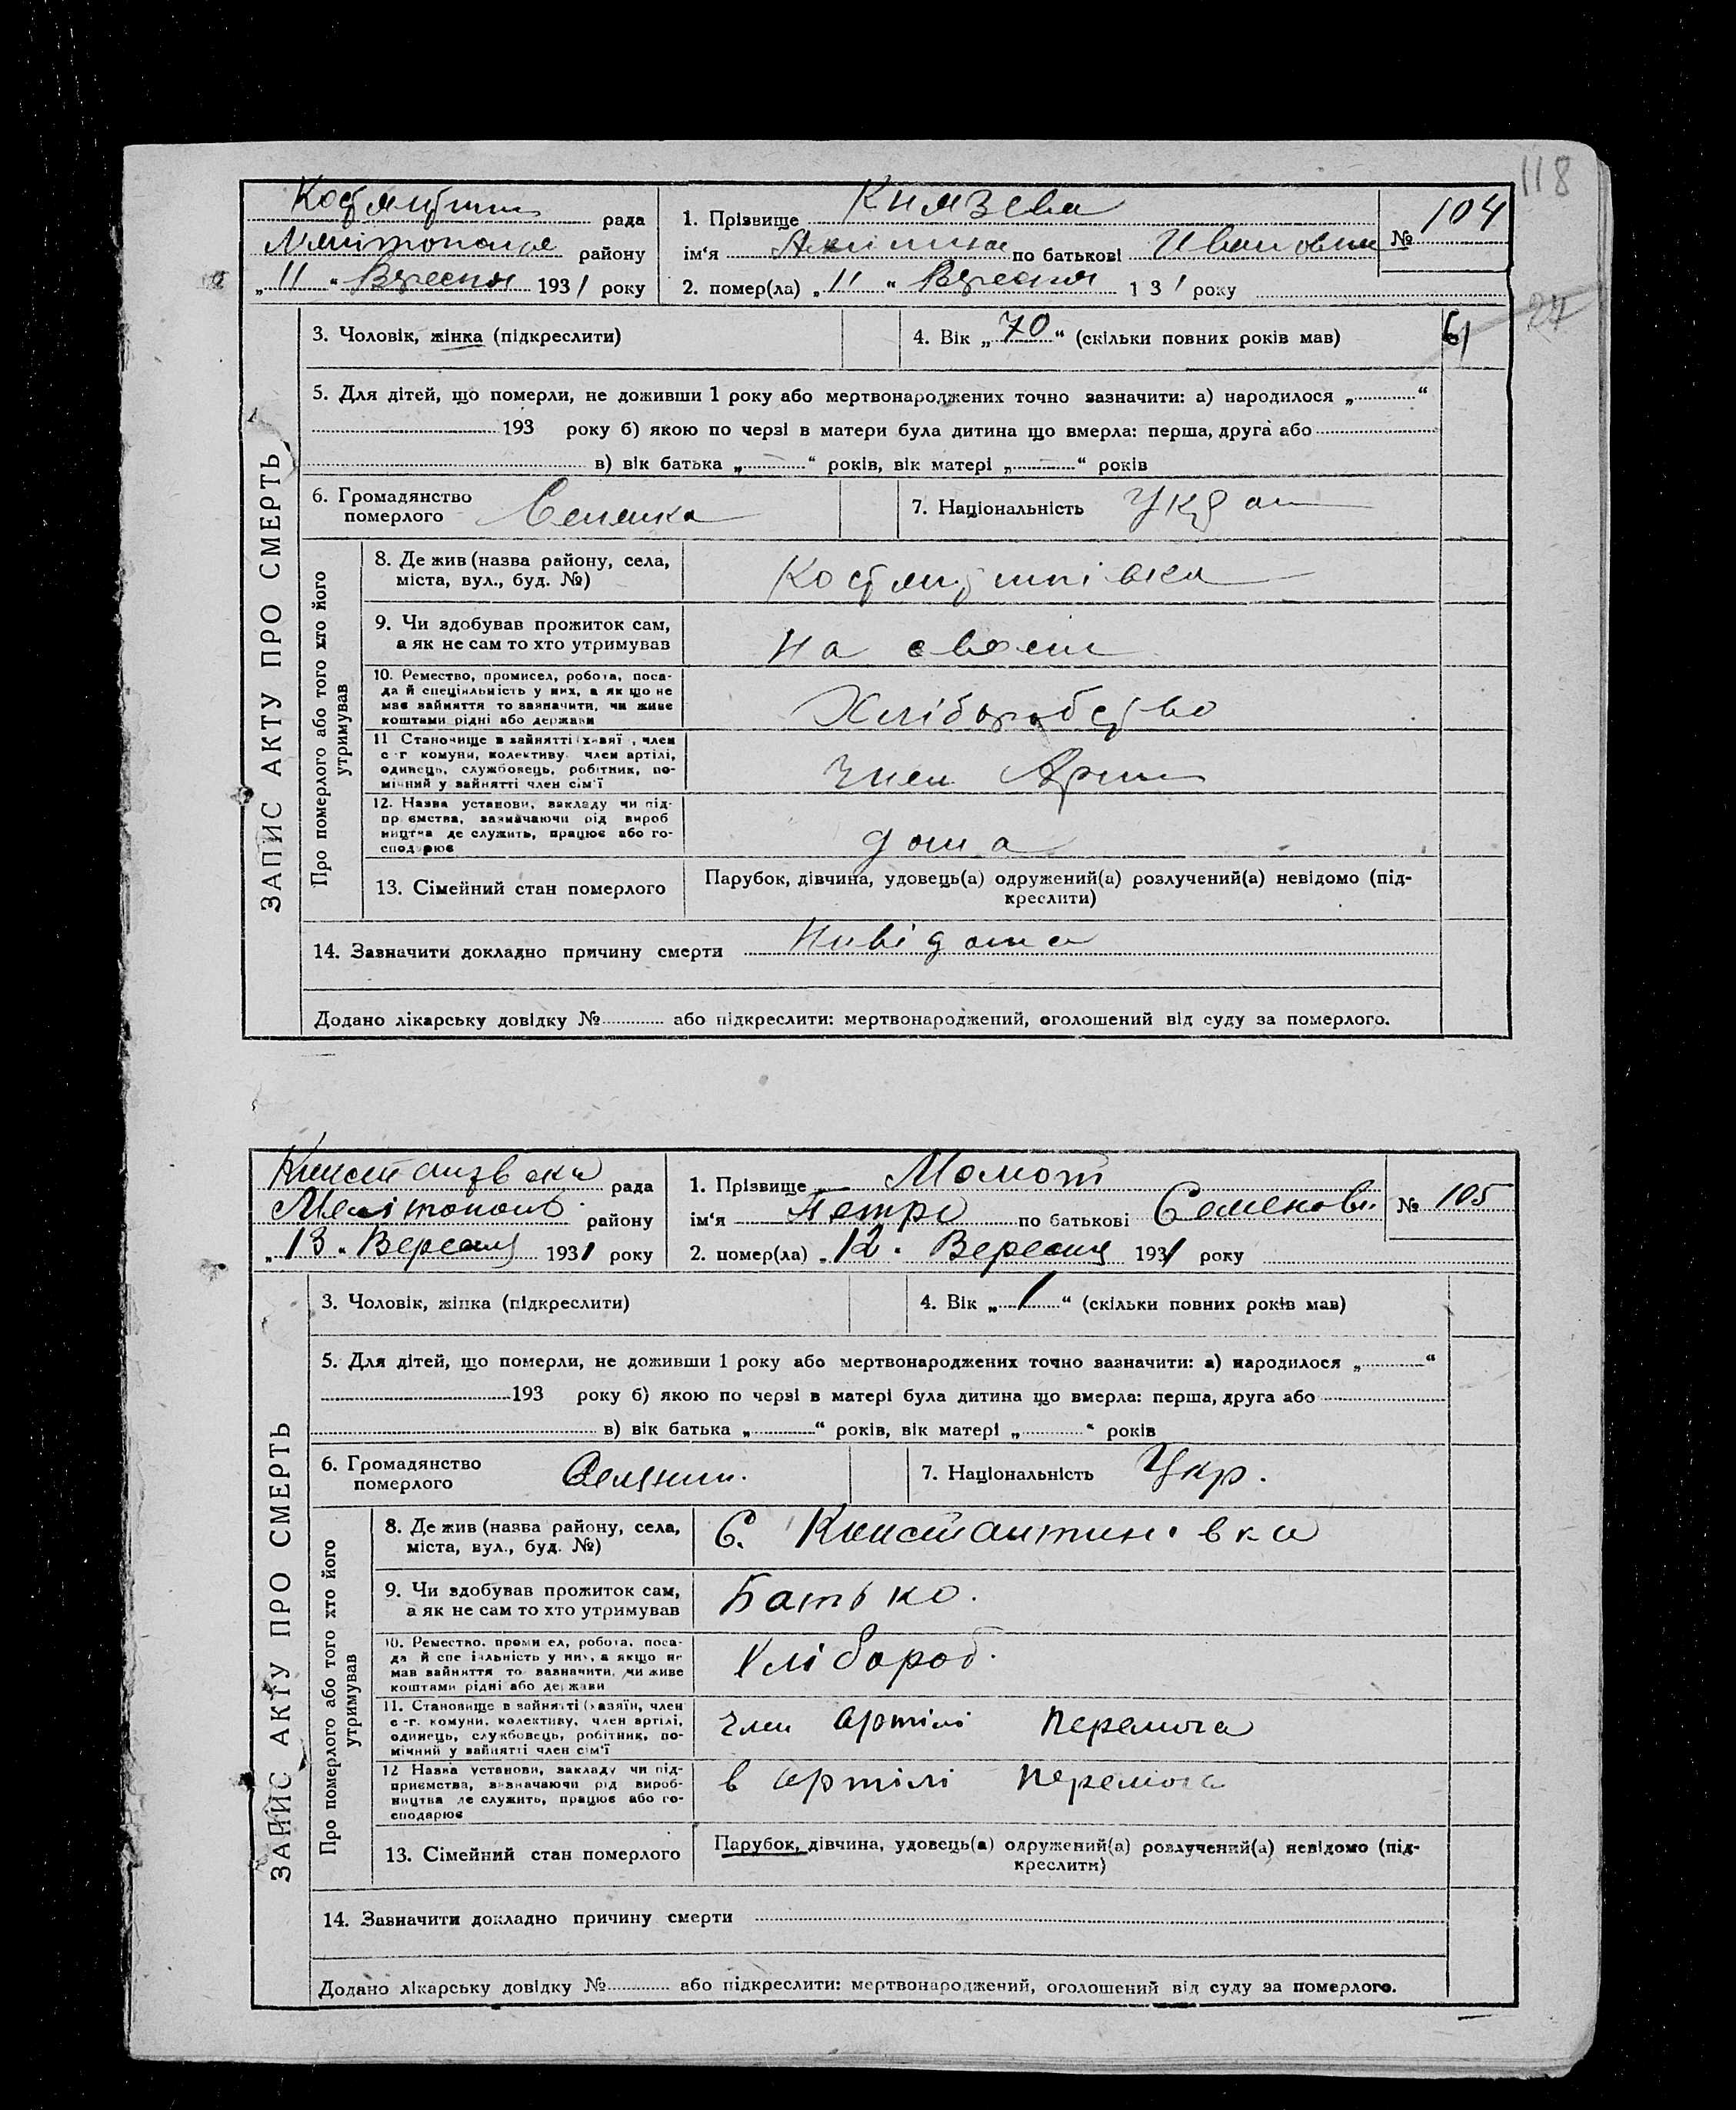 118
рада
1. Прізвище Князева
№ 104
району
ім'я по батькові
„11“ Вересня 1931 року
2. помер(ла) „11“ Вересня 1 3 1 року
27
ЗАПИС АКТУ ПРО СМЕРТЬ
3. Чоловік, жінка (підкреслити)
4. Вік „70“ (скільки повних років мав)
61
5. Для дітей, що померли, не доживши 1 року або мертвонароджених точно зазначити: а) народилося „ “
193 року б) якою по черзі в матери була дитина що вмерла: перша, друга або
в) вік батька „ “ років, вік матері „ “ років
6. Громадянство
померлого Селянка
7. Національність
Про померлого або того хто його
утримував
8. Де жив (назва району, села,
міста, вул., буд. №)
9. Чи здобував прожиток сам,
а як не сам то хто утримував
на своєм
10. Ремество, промисел, робота, поса-
да й спеціяльність у них, а як що не
має зайняття то зазначити, чи живе
коштами рідні або держави
Хліборобство
11 Становище в зайнятті (х зяї , член
с -г комуни, колективу, член артілі,
одинець, службовець, робітник, по-
мічний у зайнятті член сім'ї
Член
12. Назва установи, закладу чи під-
пр ємства, зазначаючи рід вироб
ництва де служить, працює або го-
спод рює
дома
13. Сімейний стан померлого
Парубок, дівчина, удовець(а) одружений(а) розлучений(а) невідомо (під-
креслити)
14. Зазначити докладно причину смерти Нивідома
Додано лікарську довідку № або підкреслити: мертвонароджений, оголошений від суду за померлого.
рада
1. Прізвище Момот
№ 105
Мелітополь району
ім'я Петро по батькові Семенов.
„13“ Вересня 1931 року
2. помер(ла) „12. Вересня 1931 року
ЗАПИС АКТУ ПРО СМЕРТЬ
3. Чоловік, жінка (підкреслити)
4. Вік „1“ (скільки повних років мав)
5. Для дітей, що померли, не доживши 1 року або мертвонароджених точно зазначити: а) народилося „ “
193 року б) якою по черзі в матері була дитина що вмерла: перша, друга або
в) вік батька „ “ років, вік матері „ “ років
6. Громадянство
померлого
7. Національність Укр.
Про померлого або того хто його
утримував
8. Де жив (назва району, села,
міста, вул., буд. №)
С. Константиновка
9. Чи здобував прожиток сам,
а як не сам то хто утримував
Батько.
10. Ремество, проми ел, робота, поса-
да й спе іяльність у них, а якщо не
мав зайняття то зазначити, чи живе
коштами рідні або держави
Хлібороб.
11. Становище в зайнятті (хазяїн, член
с -г. комуни, колективу, член артілі,
одинець, службовець, робітник, по-
мічний у зайнятті член сім'ї
член артілі перемога
12 Назва установи, закладу чи під-
приємства, зазначаючи рід вироб-
ництва де служить, працює або го-
сподарює
в артілі перемога
13. Сімейний стан померлого
Парубок, дівчина, удовець(а) одружений(а) розлучений(а) невідомо (під-
креслити)
14. Зазначити докладно причину смерти
Додано лікарську довідку № або підкреслити: мертвонароджений, оголошений від суду за померлого.